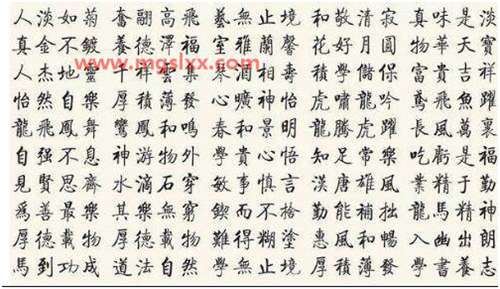 人淡如菊 奮翮高飛 藝無止境 和敬清寂 真味是淡
真金不鍍 養德澤福 室雅蘭馨 花好月圓 物華天寶
www.mgslxx.com
人杰地靈 千祥雲集 相壽 學儲 富貴吉祥
怡然自樂 厚積薄發 心曠神怡 虎嘯龍吟 鳶飛魚躍
龍飛鳳舞 鸞鳳和鳴 春和景明 龍騰虎躍 長風萬裏
自强不息 神游物外 學貴心悟 知足常樂 吃虧是福
見賢思齊 水滴石穿 敏事慎言 漢唐雄風 業精于勤
爲善最樂 其樂無窮 鍥而不捨 勤能補拙 龍馬精神
厚德載物 厚德載物 難得糊塗 惠風和暢 入幽出朗
馬到功成 道法自然 學無止境 厚積薄發 學書養志